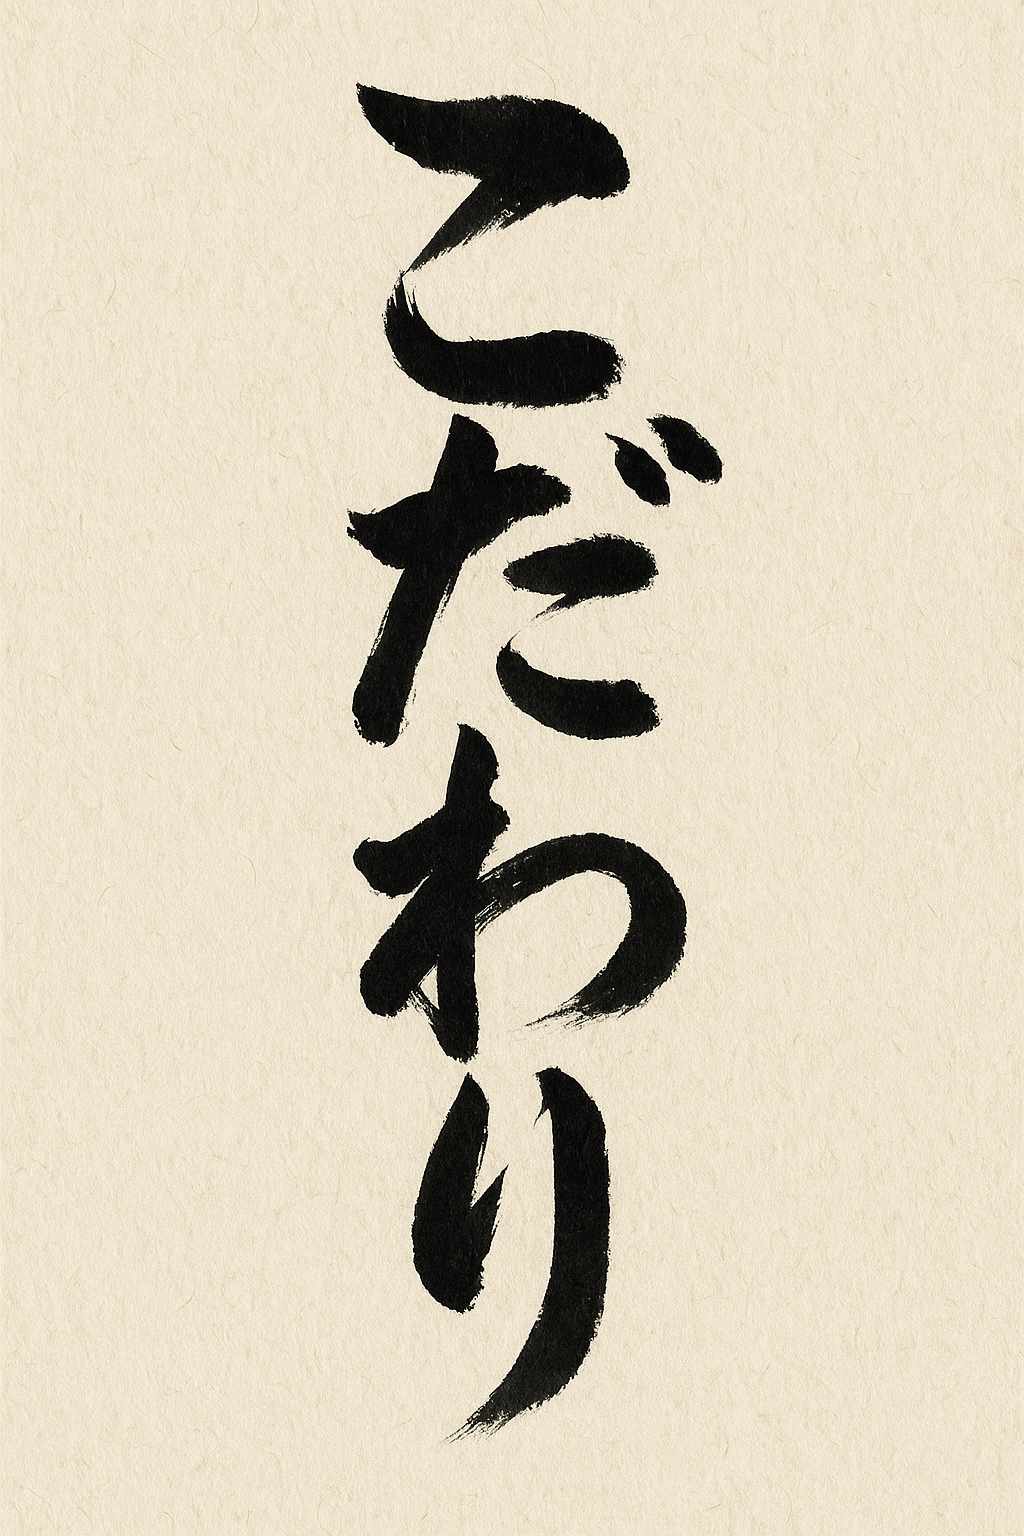 こだわり